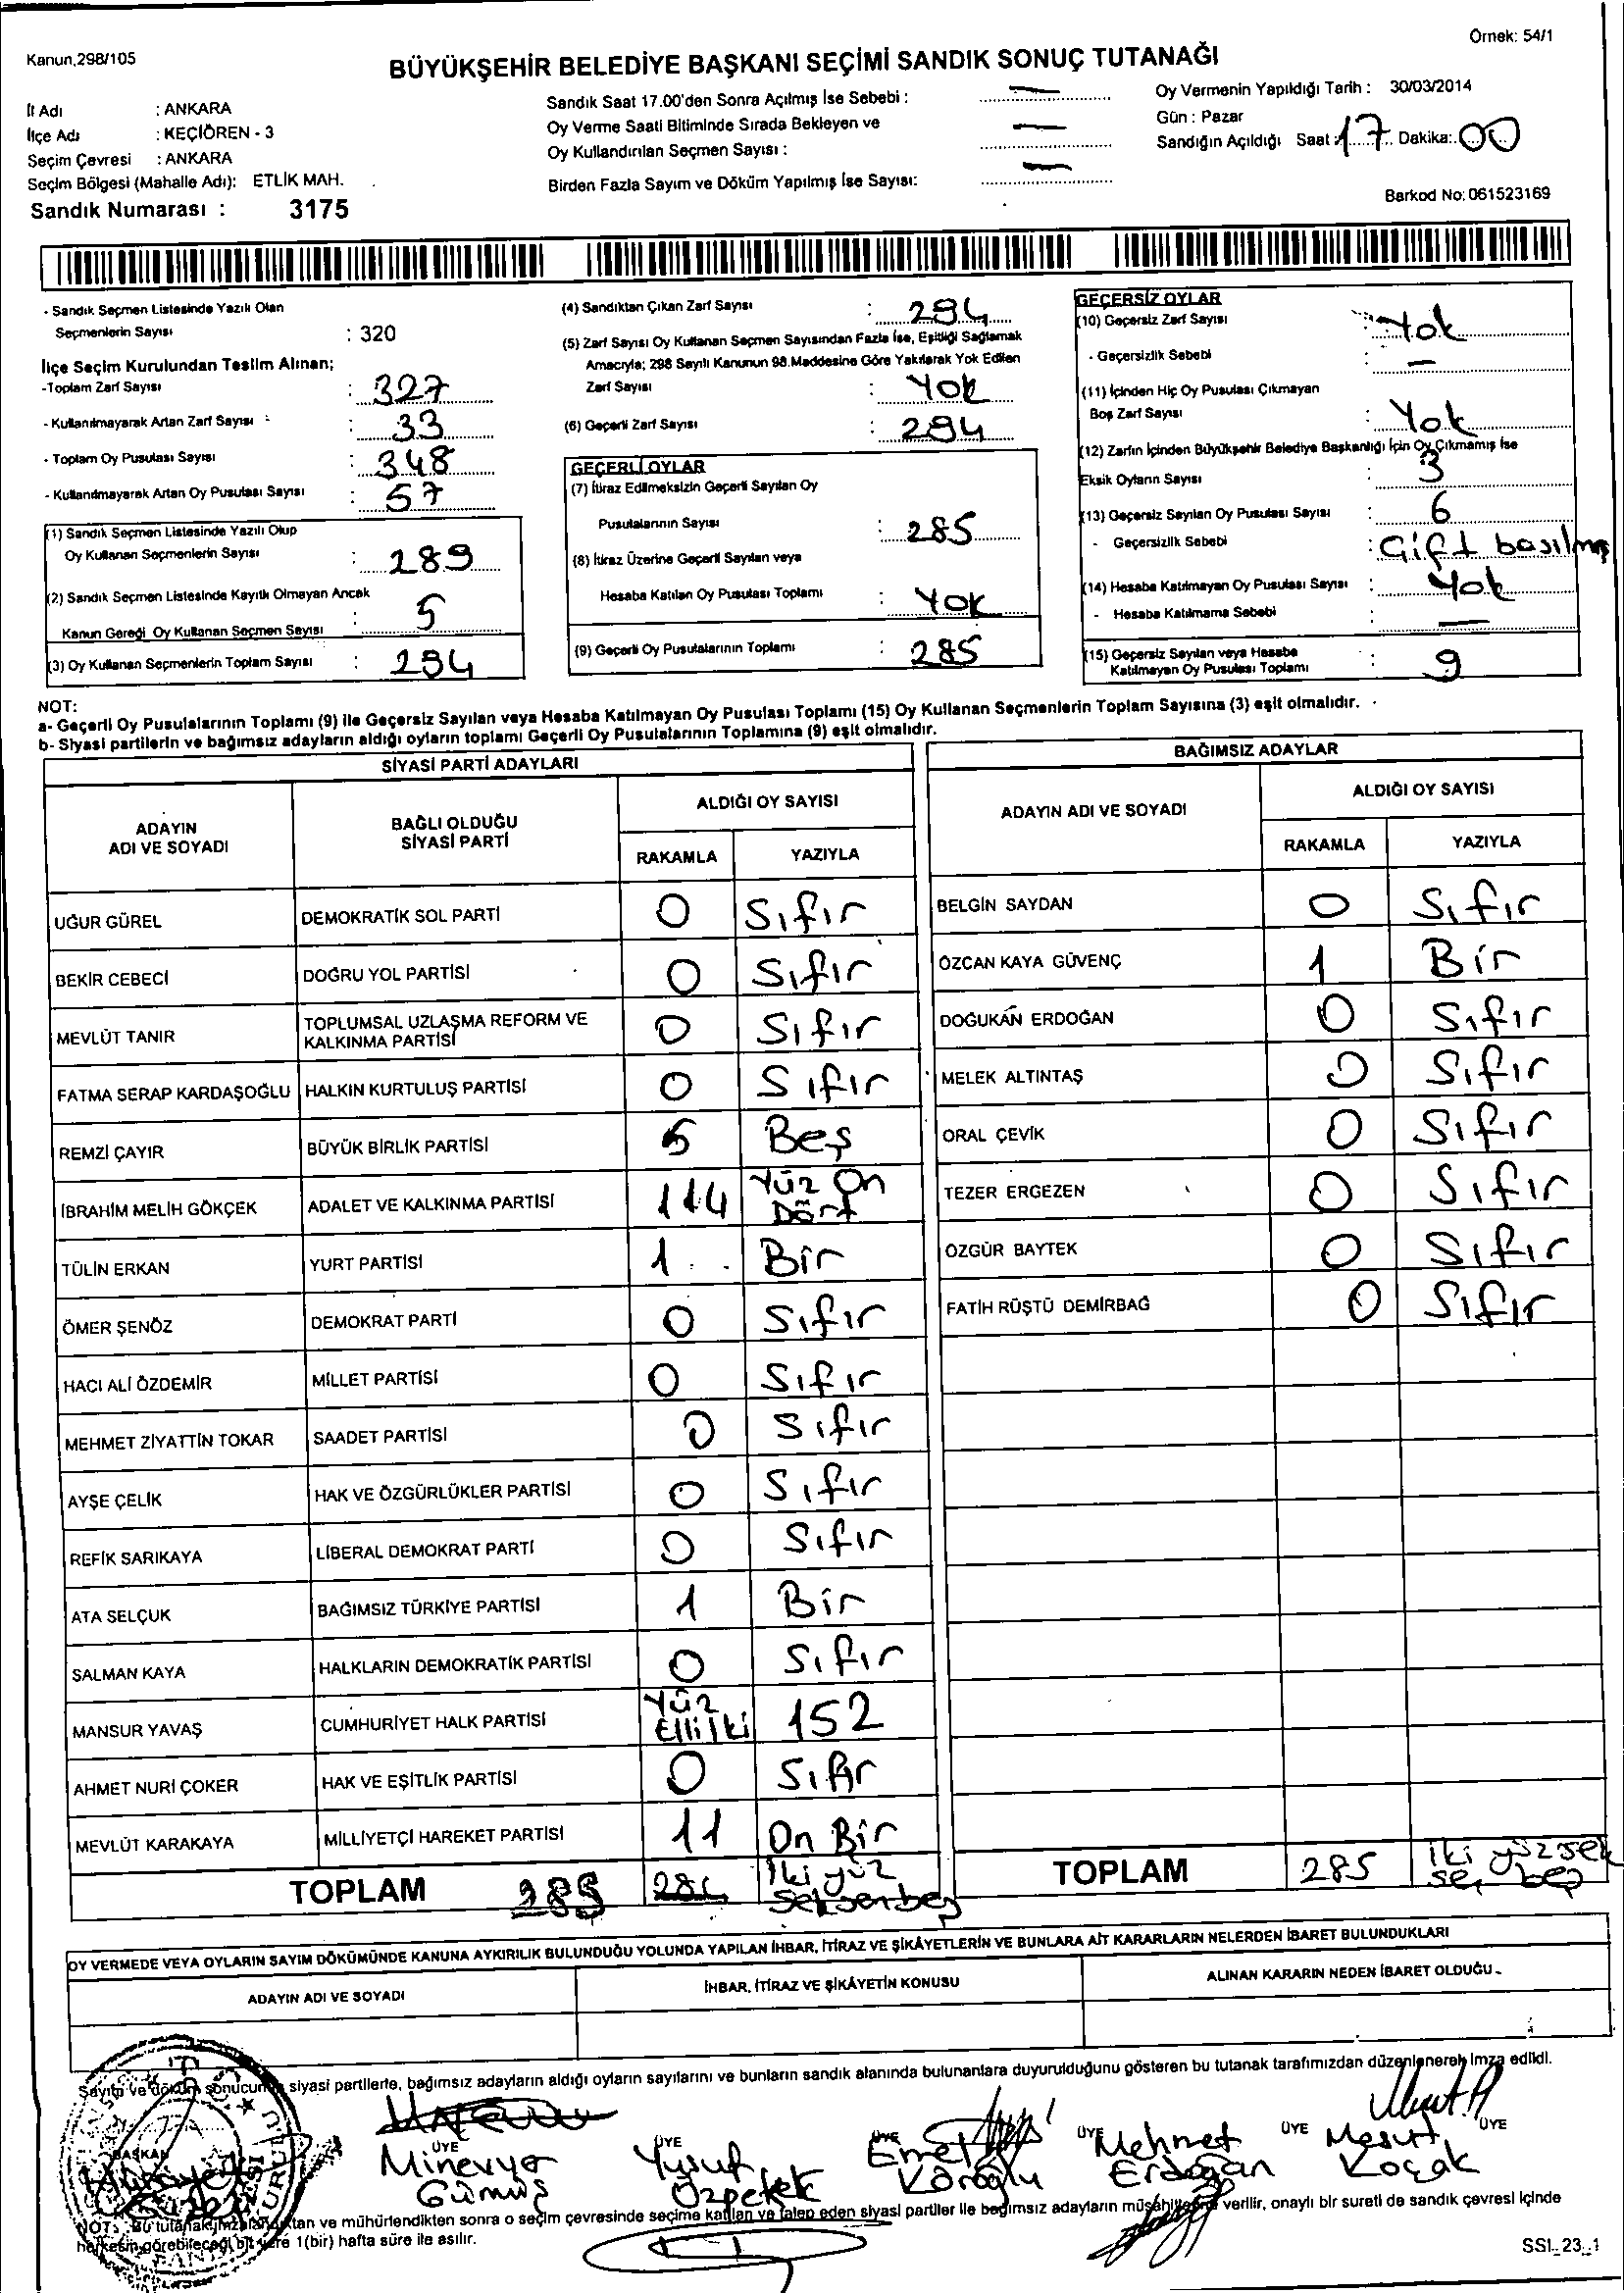 Kanun,298/105
Örnek: 54/1
BÜYÜKŞEHİR BELEDİYE BAŞKANI SEÇİMİ SANDIK SONUÇ TUTANAĞI
İl Adı : ANKARA
İlçe Adı : KEÇİÖREN - 3
Seçim Çevresi : ANKARA
Seçim Bölgesi (Mahalle Adı): ETLİK MAH.
Sandık Numarası : 3175
Sandık Saat 17.00'den Sonra Açılmış İse Sebebi : —
Oy Verme Saati Bitiminde Sırada Bekleyen ve
Oy Kullandırılan Seçmen Sayısı : —
Birden Fazla Sayım ve Döküm Yapılmış İse Sayısı: —
Oy Vermenin Yapıldığı Tarih : 30/03/2014
Gün : Pazar
Sandığın Açıldığı Saat : 17 Dakika: 00
Barkod No: 061523169
- Sandık Seçmen Listesinde Yazılı Olan
Seçmenlerin Sayısı : 320
İlçe Seçim Kurulundan Teslim Alınan;
-Toplam Zarf Sayısı : 327
- Kullanılmayarak Artan Zarf Sayısı : 33
- Toplam Oy Pusulası Sayısı : 348
- Kullanılmayarak Artan Oy Pusulası Sayısı : 57
(1) Sandık Seçmen Listesinde Yazılı Olup
Oy Kullanan Seçmenlerin Sayısı : 289
(2) Sandık Seçmen Listesinde Kayıtlı Olmayan Ancak
Kanun Gereği Oy Kullanan Seçmen Sayısı : 5
(3) Oy Kullanan Seçmenlerin Toplam Sayısı : 294
(4) Sandıktan Çıkan Zarf Sayısı : 294
(5) Zarf Sayısı Oy Kullanan Seçmen Sayısından Fazla İse, Eşitliği Sağlamak
Amacıyla; 298 Sayılı Kanunun 98.Maddesine Göre Yakılarak Yok Edilen
Zarf Sayısı : Yok
(6) Geçerli Zarf Sayısı : 294
GEÇERLİ OYLAR
(7) İtiraz Edilmeksizin Geçerli Sayılan Oy
Pusulalarının Sayısı : 285
(8) İtiraz Üzerine Geçerli Sayılan veya
Hesaba Katılan Oy Pusulası Toplamı : Yok
(9) Geçerli Oy Pusulalarının Toplamı : 285
GEÇERSİZ OYLAR
(10) Geçersiz Zarf Sayısı : Yok
- Geçersizlik Sebebi : —
(11) İçinden Hiç Oy Pusulası Çıkmayan
Boş Zarf Sayısı : Yok
(12) Zarfın İçinden Büyükşehir Belediye Başkanlığı İçin Oy Çıkmamış İse
Eksik Oyların Sayısı : 3
(13) Geçersiz Sayılan Oy Pusulası Sayısı : 6
- Geçersizlik Sebebi : Çift basılmış
(14) Hesaba Katılmayan Oy Pusulası Sayısı : Yok
- Hesaba Katılmama Sebebi : —
(15) Geçersiz Sayılan veya Hesaba
Katılmayan Oy Pusulası Toplamı : 9
NOT:
a- Geçerli Oy Pusulalarının Toplamı (9) ile Geçersiz Sayılan veya Hesaba Katılmayan Oy Pusulası Toplamı (15) Oy Kullanan Seçmenlerin Toplam Sayısına (3) eşit olmalıdır.
b- Siyasi partilerin ve bağımsız adayların aldığı oyların toplamı Geçerli Oy Pusulalarının Toplamına (9) eşit olmalıdır.
SİYASİ PARTİ ADAYLARI
ADAYIN ADI VE SOYADI BAĞLI OLDUĞU SİYASİ PARTİ ALDIĞI OY SAYISI
RAKAMLA YAZIYLA
UĞUR GÜREL DEMOKRATİK SOL PARTİ 0 Sıfır
BEKİR CEBECİ DOĞRU YOL PARTİSİ 0 Sıfır
MEVLÜT TANIR TOPLUMSAL UZLAŞMA REFORM VE KALKINMA PARTİSİ 0 Sıfır
FATMA SERAP KARDAŞOĞLU HALKIN KURTULUŞ PARTİSİ 0 Sıfır
REMZİ ÇAYIR BÜYÜK BİRLİK PARTİSİ 5 Beş
İBRAHİM MELİH GÖKÇEK ADALET VE KALKINMA PARTİSİ 114 Yüz On Dört
TÜLİN ERKAN YURT PARTİSİ 1 Bir
ÖMER ŞENÖZ DEMOKRAT PARTİ 0 Sıfır
HACI ALİ ÖZDEMİR MİLLET PARTİSİ 0 Sıfır
MEHMET ZİYATTİN TOKAR SAADET PARTİSİ 0 Sıfır
AYŞE ÇELİK HAK VE ÖZGÜRLÜKLER PARTİSİ 0 Sıfır
REFİK SARIKAYA LİBERAL DEMOKRAT PARTİ 0 Sıfır
ATA SELÇUK BAĞIMSIZ TÜRKİYE PARTİSİ 1 Bir
SALMAN KAYA HALKLARIN DEMOKRATİK PARTİSİ 0 Sıfır
MANSUR YAVAŞ CUMHURİYET HALK PARTİSİ Yüz Elli İki 152
AHMET NURİ ÇOKER HAK VE EŞİTLİK PARTİSİ 0 Sıfır
MEVLÜT KARAKAYA MİLLİYETÇİ HAREKET PARTİSİ 11 On Bir
TOPLAM 285 284 İki yüz seksenbeş
BAĞIMSIZ ADAYLAR
ADAYIN ADI VE SOYADI ALDIĞI OY SAYISI
RAKAMLA YAZIYLA
BELGİN SAYDAN 0 Sıfır
ÖZCAN KAYA GÜVENÇ 1 Bir
DOĞUKAN ERDOĞAN 0 Sıfır
MELEK ALTINTAŞ 0 Sıfır
ORAL ÇEVİK 0 Sıfır
TEZER ERGEZEN 0 Sıfır
ÖZGÜR BAYTEK 0 Sıfır
FATİH RÜŞTÜ DEMİRBAĞ 0 Sıfır
TOPLAM 285 iki yüzsek
beş
OY VERMEDE VEYA OYLARIN SAYIM DÖKÜMÜNDE KANUNA AYKIRILIK BULUNDUĞU YOLUNDA YAPILAN İHBAR, İTİRAZ VE ŞİKÂYETLERİN VE BUNLARA AİT KARARLARIN NELERDEN İBARET BULUNDUKLARI
ADAYIN ADI VE SOYADI İHBAR, İTİRAZ VE ŞİKÂYETİN KONUSU ALINAN KARARIN NEDEN İBARET OLDUĞU
Sayım ve döküm sonucunda siyasi partilerle, bağımsız adayların aldığı oyların sayılarını ve bunların sandık alanında bulunanlara duyurulduğunu gösteren bu tutanak tarafımızdan düzenlenerek imza edildi.
BAŞKAN ÜYE ÜYE ÜYE ÜYE ÜYE ÜYE
Minevver Gümüş
Yusuf Özpetek
Emel Köroğlu
Mehmet Erdoğan
Mesut Koçak
NOT: Bu tutanak imzalandıktan ve mühürlendikten sonra o seçim çevresinde seçime katılan ve talep eden siyasi partiler ile bağımsız adayların müşahitlerine verilir, onaylı bir sureti de sandık çevresi içinde
herkesin görebileceği bir yere 1(bir) hafta süre ile asılır.
SSI_23_1